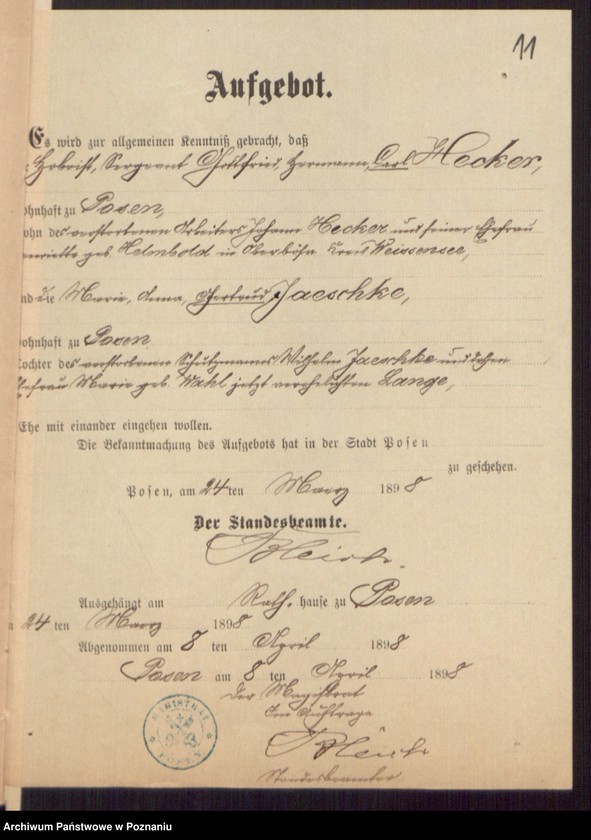 11
Aufgebot.
Es wird zur allgemeinen Kenntniß gebracht, daß
Hoboist, Sergeant Gottfried, Hermann, Carl Hecker,
ohnhaft zu Posen,
ohn des verstorbenen Arbeiters Johann Hecker und seiner Ehefrau
enriette geb. Helmbold in Oberbösa Kreis Weissensee,
nd die Marie, Anna, Gertrud Jaeschke,
ohnhaft zu Posen
ochter des verstorbenen Schutzmanns Wilhelm Jaeschke und dessen
Ehefrau Marie geb. Wahl jetzt verehelichten Lange,
Ehe mit einander eingehen wollen.
Die Bekanntmachung des Aufgebots hat in der Stadt Posen
zu geschehen.
Posen, am 24ten Maerz 1898
Der Standesbeamte.
Ausgehängt am Rath. hause zu Posen
24 ten Maerz 1898
Abgenommen am 8 ten April 1898
Posen am 8 ten April 1898
Der Magistrat
Im Auftrage
Standesbeamter
MAGISTRAT POSEN
Archiwum Państwowe w Poznaniu